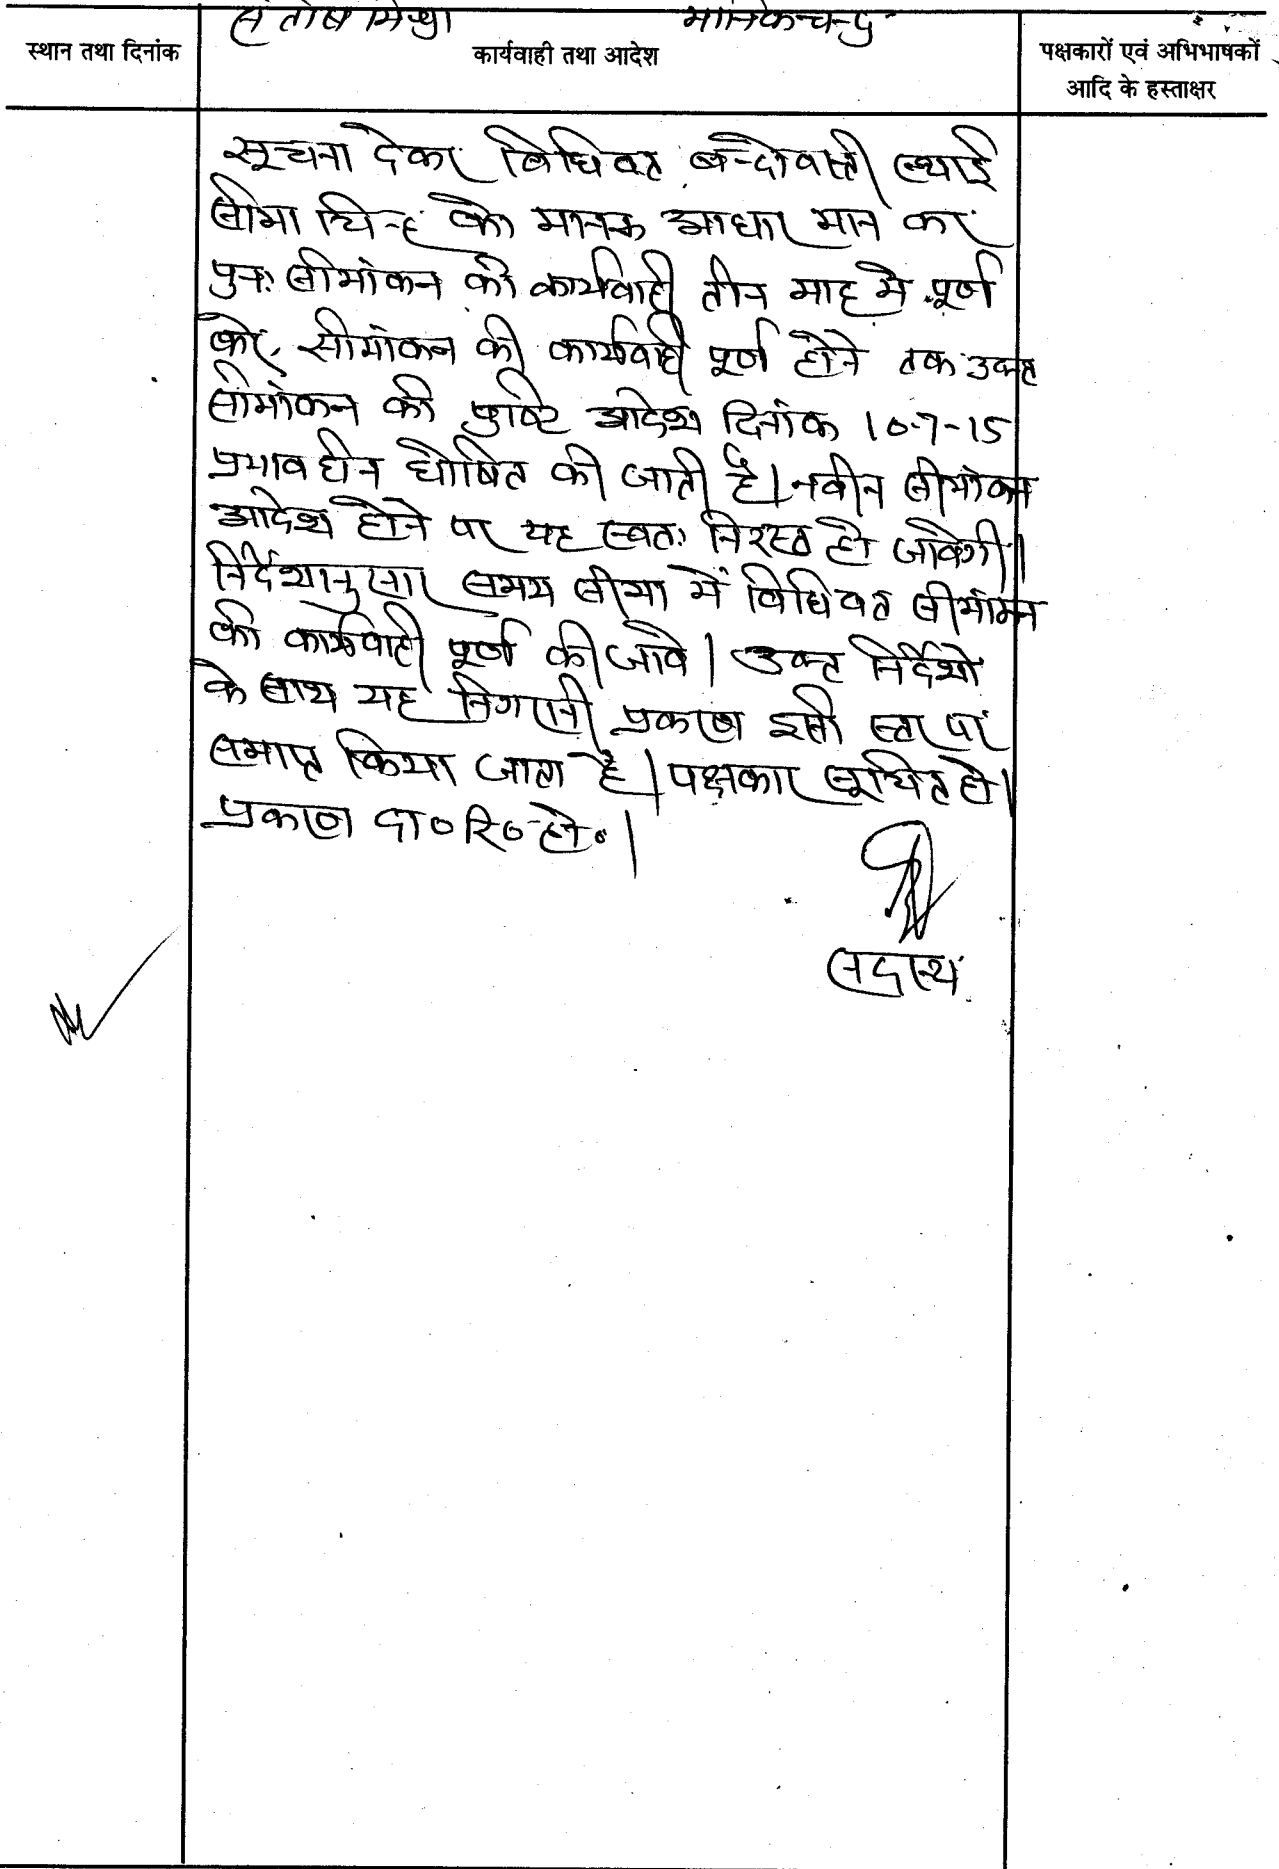 संतोष मिश्रा मानिकचन्द्र
स्थान तथा दिनांक
कार्यवाही तथा आदेश
पक्षकारों एवं अभिभाषकों
आदि के हस्ताक्षर
सूचना देकर विधिवत बन्दोवस्ती स्थाई
सीमा चिन्ह को मानक आधार मान कर
पुनः सीमांकन की कार्यवाही तीन माह मे पूर्ण
करे, सीमांकन की कार्यवाही पूर्ण होने तक उक्त
सीमांकन की पुष्टि आदेश दिनांक 10-7-15
प्रभाव हीन घोषित की जाती है। नवीन सीमांकन
आदेश होने पर यह स्वतः निरस्त हो जावेगी।
निर्देशानुसार समय सीमा में विधिवत सीमांकन
की कार्यवाही पूर्ण की जावे। उक्त निर्देशो
के साथ यह निगरानी प्रकरण इसी स्तर पर
समाप्त किया जाता है। पक्षकार सूचित हो।
प्रकरण दा० रि० हो०।
सदस्य